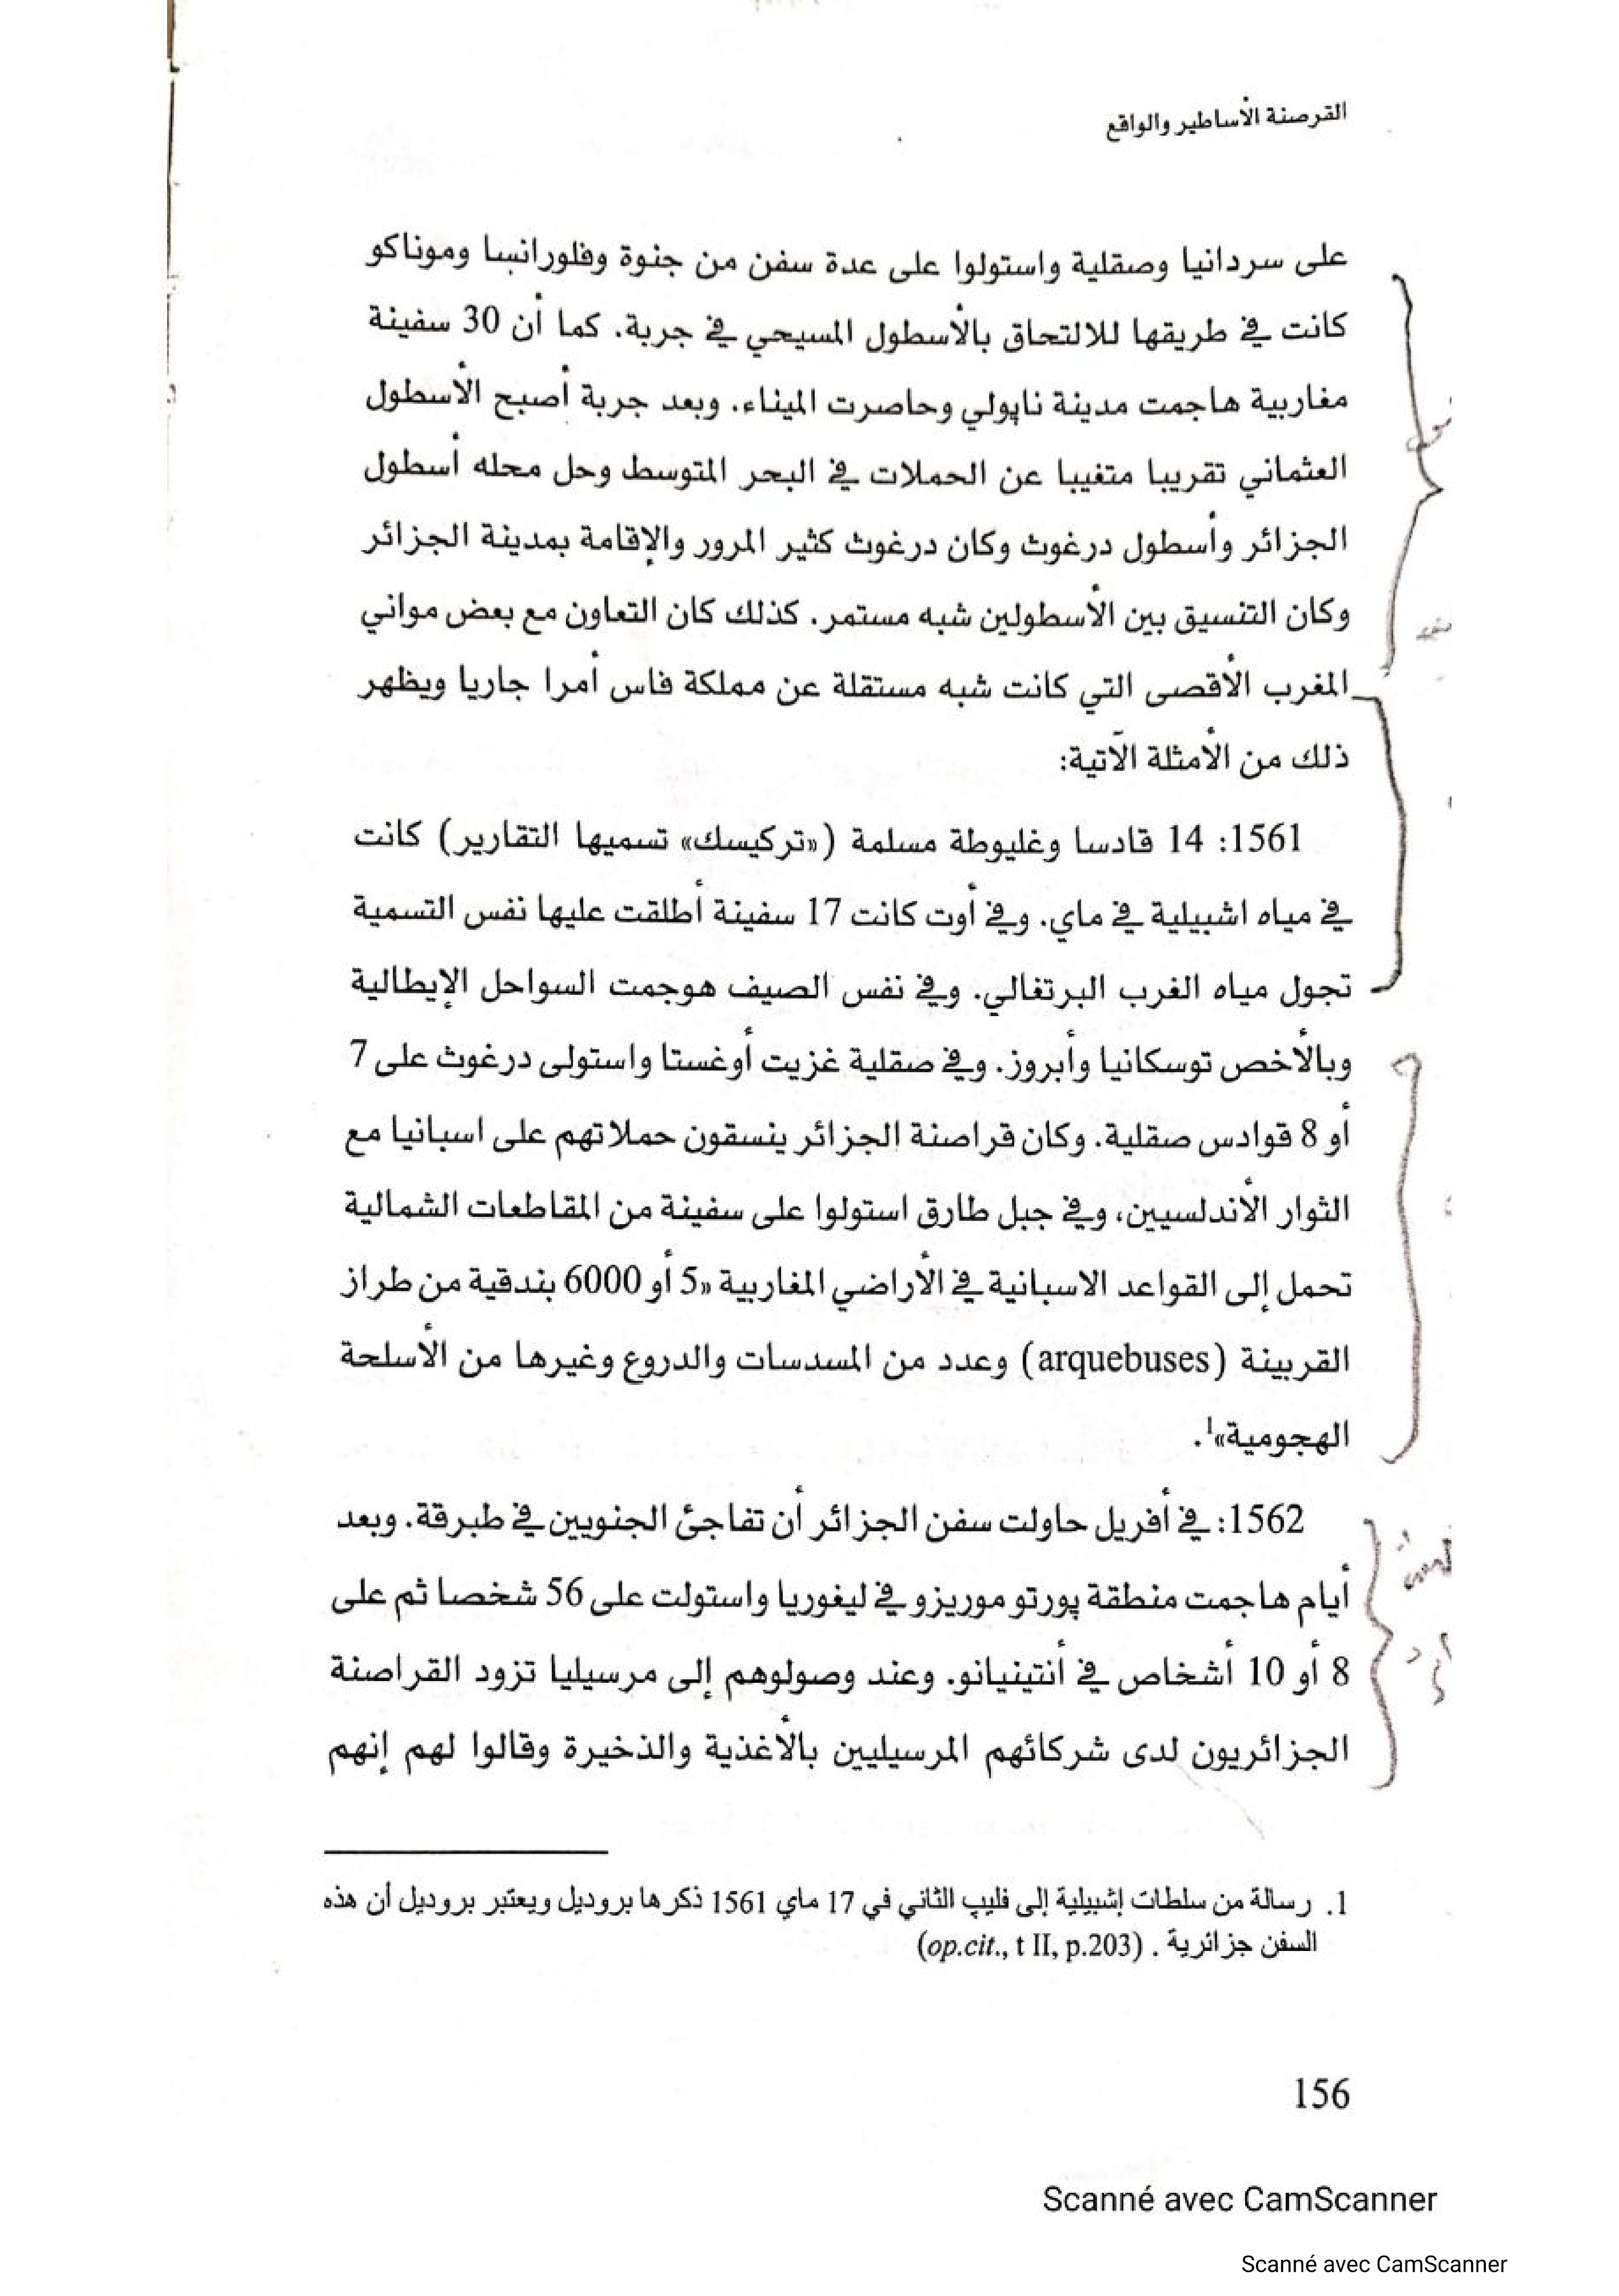 القرصنة الأساطير والواقع
على سردانيا وصقلية واستولوا على عدة سفن من جنوة وفلورانسا وموناكو
كانت في طريقها للالتحاق بالأسطول المسيحي في جربة. كما أن 30 سفينة
مغاربية هاجمت مدينة ناپولي وحاصرت الميناء. وبعد جربة أصبح الأسطول
العثماني تقريبا متغيبا عن الحملات في البحر المتوسط وحل محله أسطول
الجزائر وأسطول درغوث وكان درغوث كثير المرور والإقامة بمدينة الجزائر
وكان التنسيق بين الأسطولين شبه مستمر. كذلك كان التعاون مع بعض مواني
المغرب الأقصى التي كانت شبه مستقلة عن مملكة فاس أمرا جاريا ويظهر
ذلك من الأمثلة الآتية:
1561: 14 قادسا وغليوطة مسلمة («تركيسك» تسميها التقارير) كانت
في مياه اشبيلية في ماي. وفي أوت كانت 17 سفينة أطلقت عليها نفس التسمية
تجول مياه الغرب البرتغالي. وفي نفس الصيف هوجمت السواحل الإيطالية
وبالأخص توسكانيا وأبروز. وفي صقلية غزيت أوغستا واستولى درغوث على 7
أو 8 قوادس صقلية. وكان قراصنة الجزائر ينسقون حملاتهم على اسبانيا مع
الثوار الأندلسيين، وفي جبل طارق استولوا على سفينة من المقاطعات الشمالية
تحمل إلى القواعد الاسبانية في الأراضي المغاربية «5 أو 6000 بندقية من طراز
القربينة (arquebuses) وعدد من المسدسات والدروع وغيرها من الأسلحة
الهجومية»1.
1562: في أفريل حاولت سفن الجزائر أن تفاجئ الجنويين في طبرقة. وبعد
أيام هاجمت منطقة پورتو موريزو في ليغوريا واستولت على 56 شخصا ثم على
8 أو 10 أشخاص في أنتينيانو. وعند وصولوهم إلى مرسيليا تزود القراصنة
الجزائريون لدى شركائهم المرسيليين بالأغذية والذخيرة وقالوا لهم إنهم
1. رسالة من سلطات إشبيلية إلى فليپ الثاني في 17 ماي 1561 ذكرها بروديل ويعتبر بروديل أن هذه
السفن جزائرية . (op.cit., t II, p.203)
156
Scanné avec CamScanner
Scanné avec CamScanner